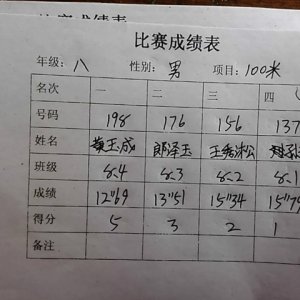 比赛成绩表
年级：八 性别：男 项目：100米
名次 一 二 三 四
号码 198 176 156 137
姓名 黄玉成 郎泽玉 王秀松
班级 8.4 8.3 8.2 8.1
成绩 12"69 13"51 15"34 15"79
得分 5 3 2 1
备注